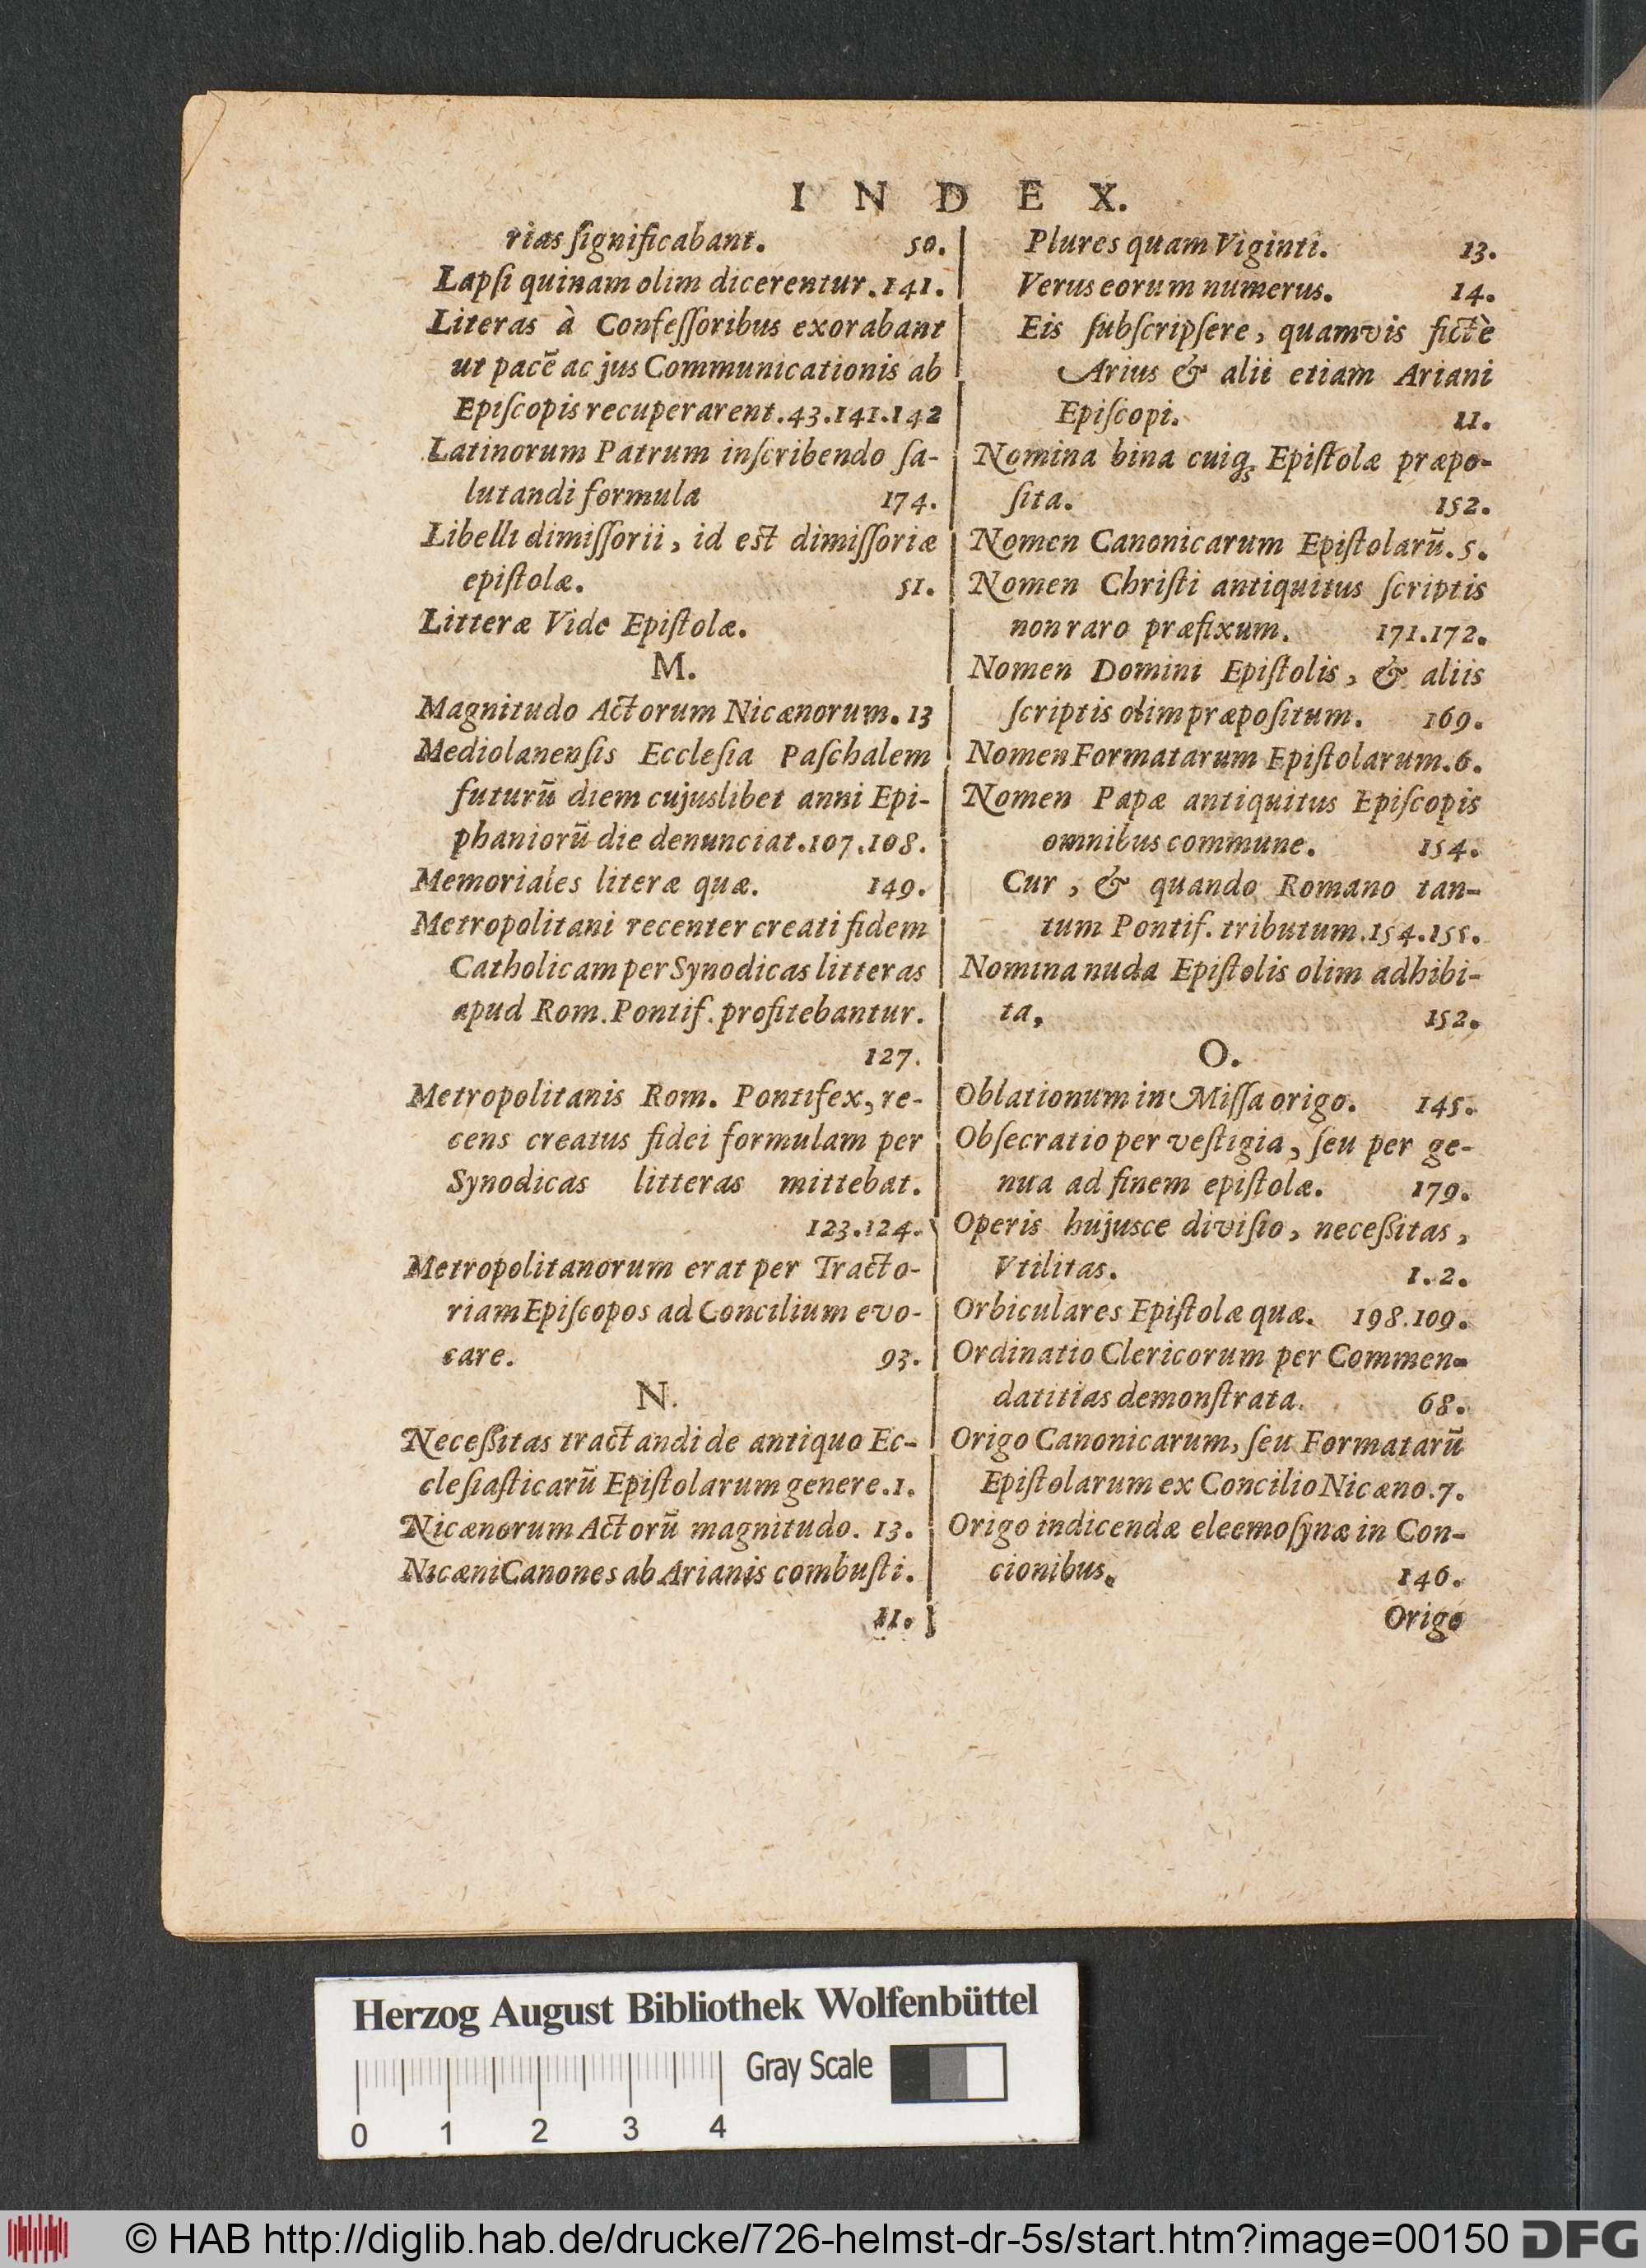 INDEX.
rias ſignificabant. 50.
Lapſi quinam olim dicerentur. 141.
Literas à Confeſſoribus exorabant
ut pacē ac jus Communicationis ab
Epiſcopis recuperarent. 43.141.142
Latinorum Patrum inſcribendo ſa-
lutandi formula 174.
Libelli dimiſſorii, id eſt dimiſſoriæ
epiſtolæ. 51.
Litteræ Vide Epiſtolæ.
M.
Magnitudo Actorum Nicænorum. 13
Mediolanenſis Eccleſia Paſchalem
futurū diem cujuslibet anni Epi-
phaniorū die denunciat. 107.108.
Memoriales literæ quæ. 149.
Metropolitani recenter creati fidem
Catholicam per Synodicas litteras
apud Rom. Pontif. profitebantur.
127.
Metropolitanis Rom. Pontifex, re-
cens creatus fidei formulam per
Synodicas litteras mittebat.
123.124.
Metropolitanorum erat per Tracto-
riam Epiſcopos ad Concilium evo-
care. 93.
N.
Neceßitas tractandi de antiquo Ec-
cleſiaſticarū Epiſtolarum genere. 1.
Nicænorum Actorū magnitudo. 13.
Nicæni Canones ab Arianis combuſti.
11.
Plures quam Viginti. 13.
Verus eorum numerus. 14.
Eis ſubſcripſere, quamvis fictè
Arius & alii etiam Ariani
Epiſcopi. 11.
Nomina bina cuiq; Epiſtolæ præpo-
ſita. 152.
Nomen Canonicarum Epiſtolarū. 5.
Nomen Chriſti antiquitus ſcriptis
non raro præfixum. 171.172.
Nomen Domini Epiſtolis, & aliis
ſcriptis olim præpoſitum. 169.
Nomen Formatarum Epiſtolarum. 6.
Nomen Papæ antiquitus Epiſcopis
omnibus commune. 154.
Cur, & quando Romano tan-
tum Pontif. tributum. 154.155.
Nomina nuda Epiſtolis olim adhibi-
ta, 152.
O.
Oblationum in Miſſa origo. 145.
Obſecratio per veſtigia, ſeu per ge-
nua ad finem epiſtolæ. 179.
Operis hujusce diviſio, neceßitas,
Vtilitas. 1.2.
Orbiculares Epiſtolæ quæ. 198.109.
Ordinatio Clericorum per Commen-
datitias demonſtrata. 68.
Origo Canonicarum, ſeu Formatarū
Epiſtolarum ex Concilio Nicæno. 7.
Origo indicendæ eleemoſynæ in Con-
cionibus. 146.
Origo
Herzog August Bibliothek Wolfenbüttel
Gray Scale
0 1 2 3 4
© HAB http://diglib.hab.de/drucke/726-helmst-dr-5s/start.htm?image=00150 DFG